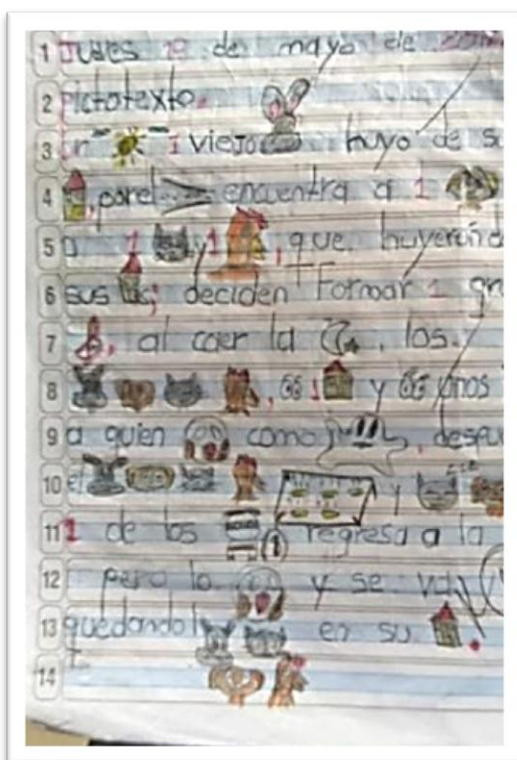 1 Jueves 19 de mayo de
2 Pictotexto.
3 Un 1 viejo huyo de su
4 , por el encuentra a 1
5 a 1 y 1 , que huyeron de
6 sus , deciden formar 1
7 , al caer la , los
8 , 1 y
9 a quien como , despu
10 el y
11 1 de los regresa a la
12 pero lo y se va
13 quedando en su .
14